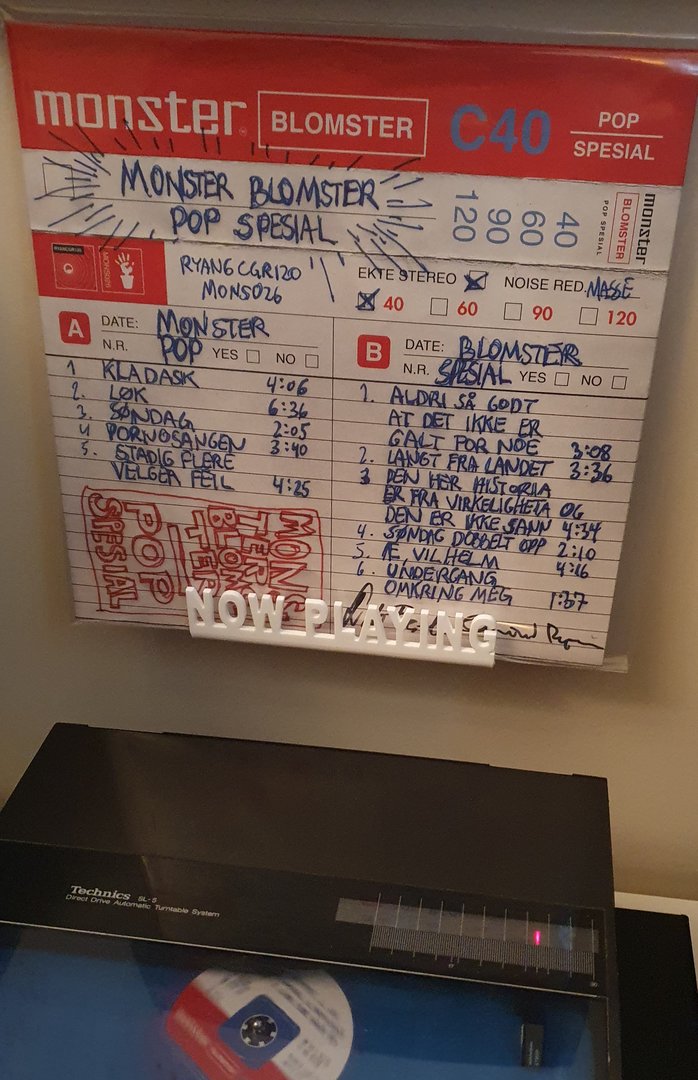 monster BLOMSTER C40 POP SPESIAL
MONSTER BLOMSTER
POP SPESIAL
40
60
90
120
monster
BLOMSTER
POP SPESIAL
RYANGCGR120
MONS026
RYANGCGR120
MONS026
EKTE STEREO NOISE RED. MASSE
40 60 90 120
A DATE: MONSTER
N.R. POP YES NO
1 KLADASK 4:06
2. LØK 6:36
3. SØNDAG 2:05
4 PORNOSANGEN 3:40
5. STADIG FLERE
VELGER FEIL 4:25
MONS
TER
BLOM
STER
POP
SPESIAL
B DATE: BLOMSTER
N.R. SPESIAL YES NO
1. ALDRI SÅ GODT
AT DET IKKE ER
GALT FOR NOE 3:08
2. LANGT FRA LANDET 3:36
3 DEN HER HISTORIA
ER FRA VIRKELIGHETA OG
DEN ER IKKE SANN 4:34
4. SØNDAG DOBBELT OPP 2:10
5. Æ, VILHELM 4:16
6. UNDERGANG
OMKRING MEG 1:37
NOW PLAYING
Technics SL-5
Direct Drive Automatic Turntable System